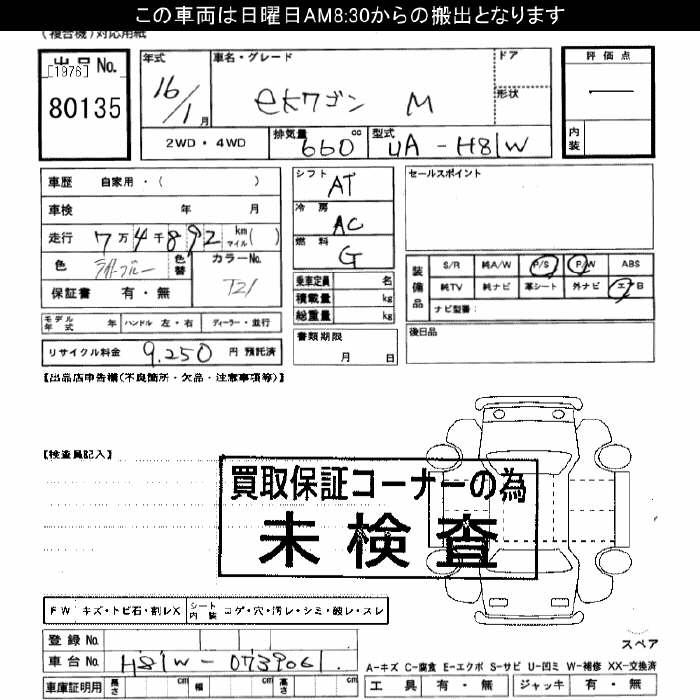 この車両は日曜日AM8:30からの搬出となります
(複合機)対応用紙
出品 No. [1976]
80135
年式 16/1月
車名・グレード ekワゴン M
ドア
形状
評価点
内装
2WD・4WD
排気量 660 cc
型式 UA-H81W
車歴 自家用・( )
車検 年 月
走行 7万4千892 km マイル( )
色 ライトブルー 色替 カラーNo. T21
保証書 有・無
モデル年式 年 ハンドル 左・右 ディーラー・並行
リサイクル料金 9,250 円 預託済
シフト AT
冷房 AC
燃料 G
乗車定員 名
積載量 kg
総重量 kg
書類期限
月 日
セールスポイント
装備品
S/R 純A/W P/S P/W ABS
純TV 純ナビ 革シート 外ナビ エアB
ナビ型番:
後日品
【出品店申告欄(不良箇所・欠品・注意事項等)】
【検査員記入】
買取保証コーナーの為
未検査
FW キズ・トビ石・割レX シート内装 コゲ・穴・汚レ・シミ・破レ・スレ
登録 No.
車台 No. H81W-0739061
車庫証明用 長さ cm 幅 cm 高さ cm
スペア
A-キズ C-腐食 E-エクボ S-サビ U-凹ミ W-補修 XX-交換済
工具 有・無 ジャッキ 有・無